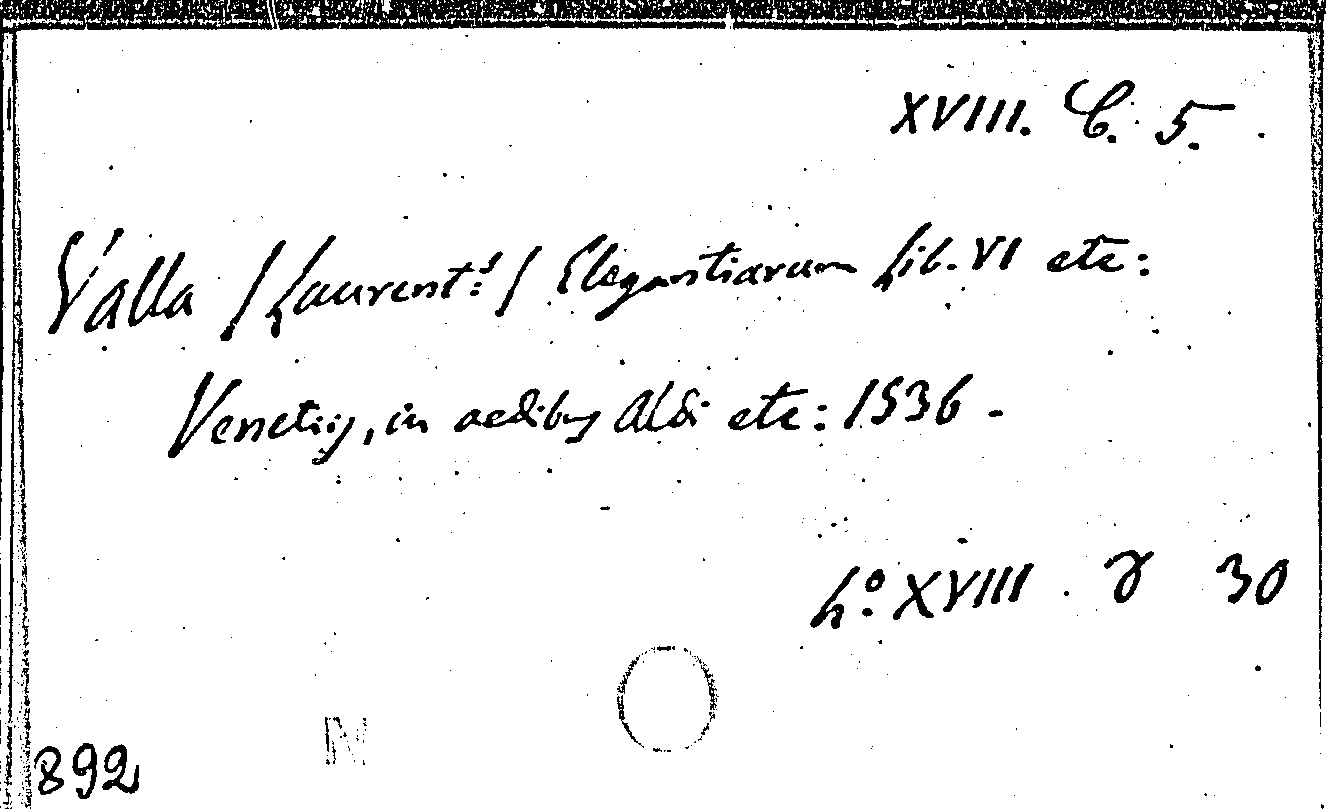 XVIII. C. 5.
Valla /Laurent:s/ Elegantiarum Lib. VI etc:
Venetiis, in aedibus Aldi etc: 1536.
h.o XVIII. γ 30
N
892